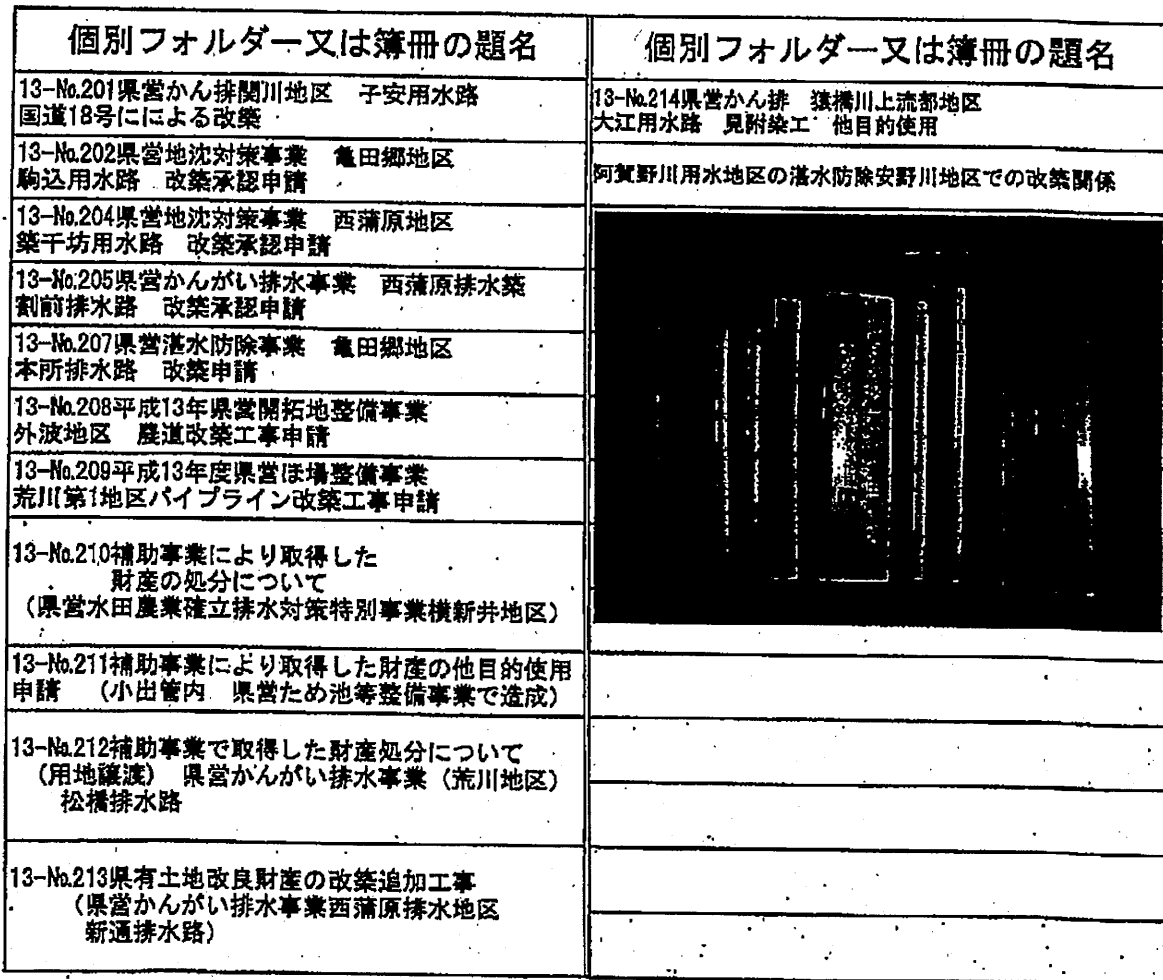 個別フォルダー又は簿冊の題名
13-No.201県営かん排関川地区　子安用水路
国道18号にによる改築
13-No.202県営地沈対策事業　亀田郷地区
駒込用水路　改築承認申請
13-No.204県営地沈対策事業　西蒲原地区
築千坊用水路　改築承認申請
13-No.205県営かんがい排水事業　西蒲原排水築
割前排水路　改築承認申請
13-No.207県営湛水防除事業　亀田郷地区
本所排水路　改築申請
13-No.208平成13年県営開拓地整備事業
外波地区　農道改築工事申請
13-No.209平成13年度県営ほ場整備事業
荒川第1地区パイプライン改築工事申請
13-No.210補助事業により取得した
財産の処分について
（県営水田農業確立排水対策特別事業横新井地区）
13-No.211補助事業により取得した財産の他目的使用
申請　（小出管内　県営ため池等整備事業で造成）
13-No.212補助事業で取得した財産処分について
（用地譲渡）　県営かんがい排水事業（荒川地区）
松橋排水路
13-No.213県有土地改良財産の改築追加工事
（県営かんがい排水事業西蒲原排水地区
新通排水路）
個別フォルダー又は簿冊の題名
13-No.214県営かん排　猿橋川上流部地区
大江用水路　見附染工　他目的使用
阿賀野川用水地区の湛水防除安野川地区での改築関係